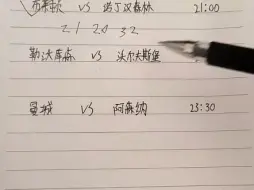 布莱顿 VS 诺丁汉森林 21:00
2.1 2.0 3.2
勒沃库森 VS 沃尔夫斯堡
曼城 VS 阿森纳 23:30